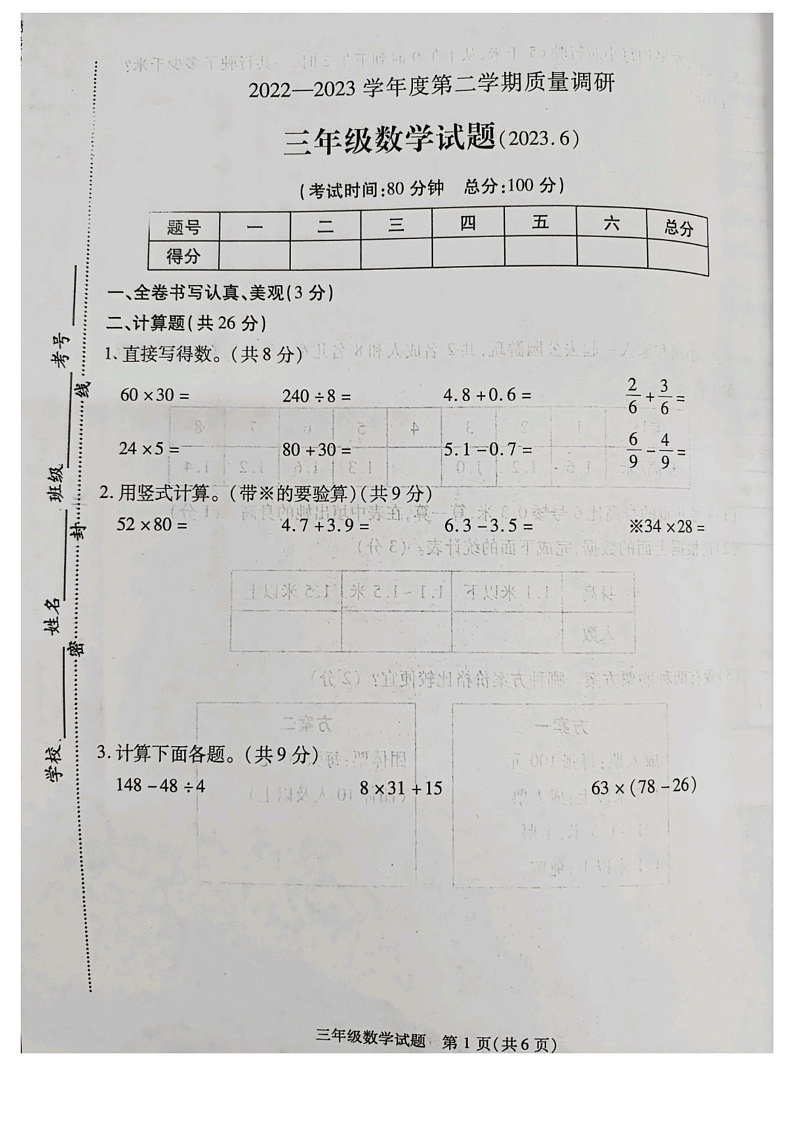 2022—2023 学年度第二学期质量调研
三年级数学试题(2023.6)
(考试时间:80 分钟 总分:100 分)
题号 一 二 三 四 五 六 总分
得分
一、全卷书写认真、美观(3 分)
二、计算题(共 26 分)
1. 直接写得数。(共 8 分)
60×30= 240÷8= 4.8+0.6= 2/6+3/6=
24×5= 80+30= 5.1-0.7= 6/9-4/9=
2. 用竖式计算。(带※的要验算)(共 9 分)
52×80= 4.7+3.9= 6.3-3.5= ※34×28=
3. 计算下面各题。(共 9 分)
148-48÷4 8×31+15 63×(78-26)
三年级数学试题 第 1 页(共 6 页)
学校 姓名 班级 考号
密 封 线